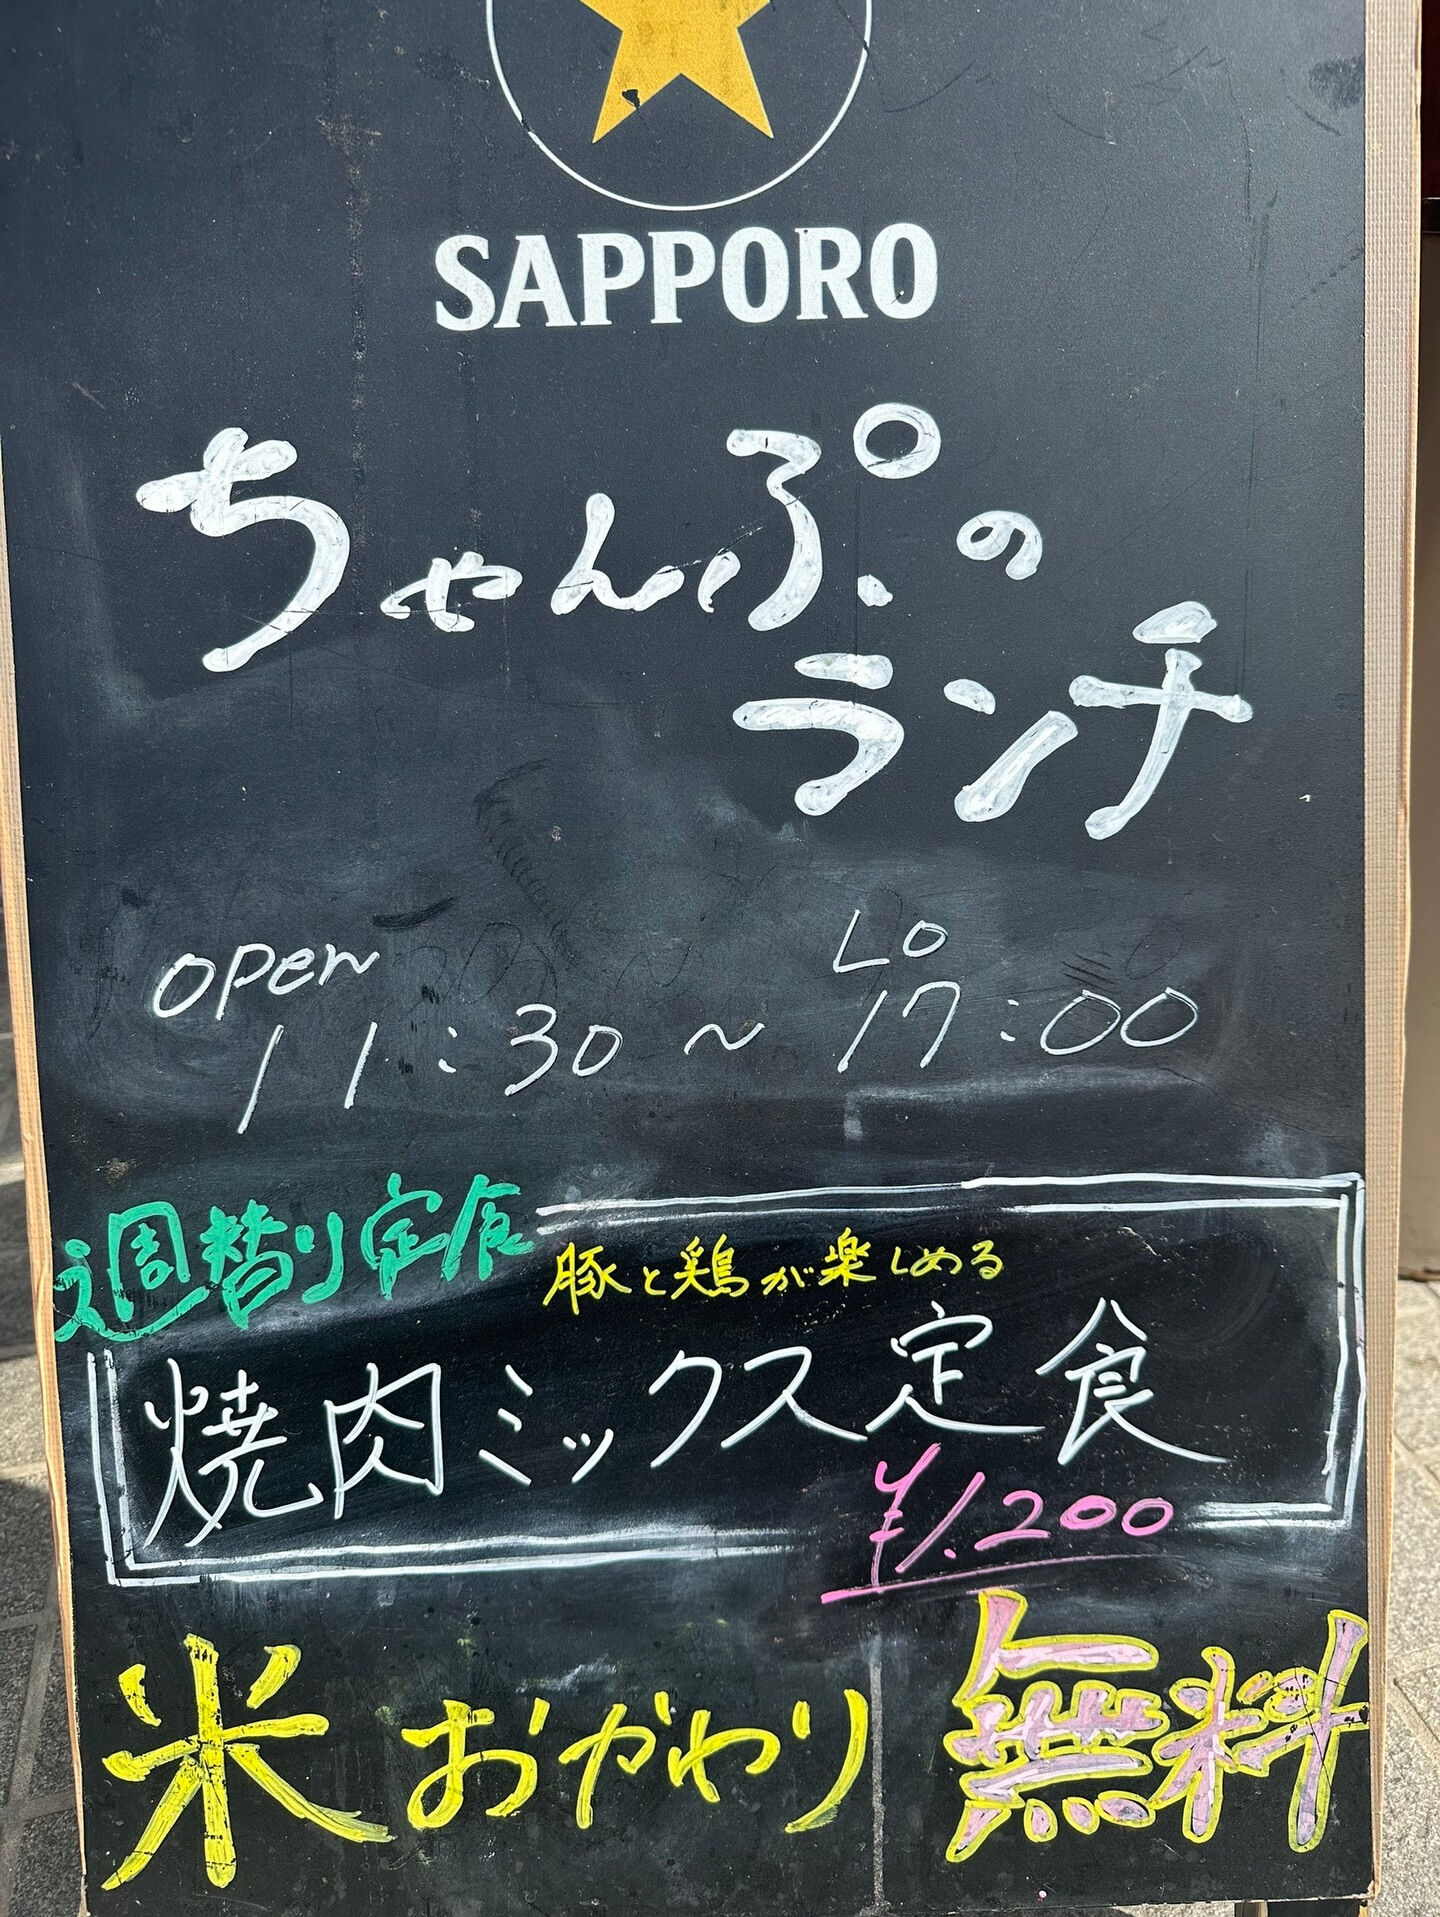 SAPPORO
ちゃんぷの
ランチ
OPEN LO
11:30～17:00
週替り定食
豚と鶏が楽しめる
焼肉ミックス定食
¥1.200
米おかわり無料